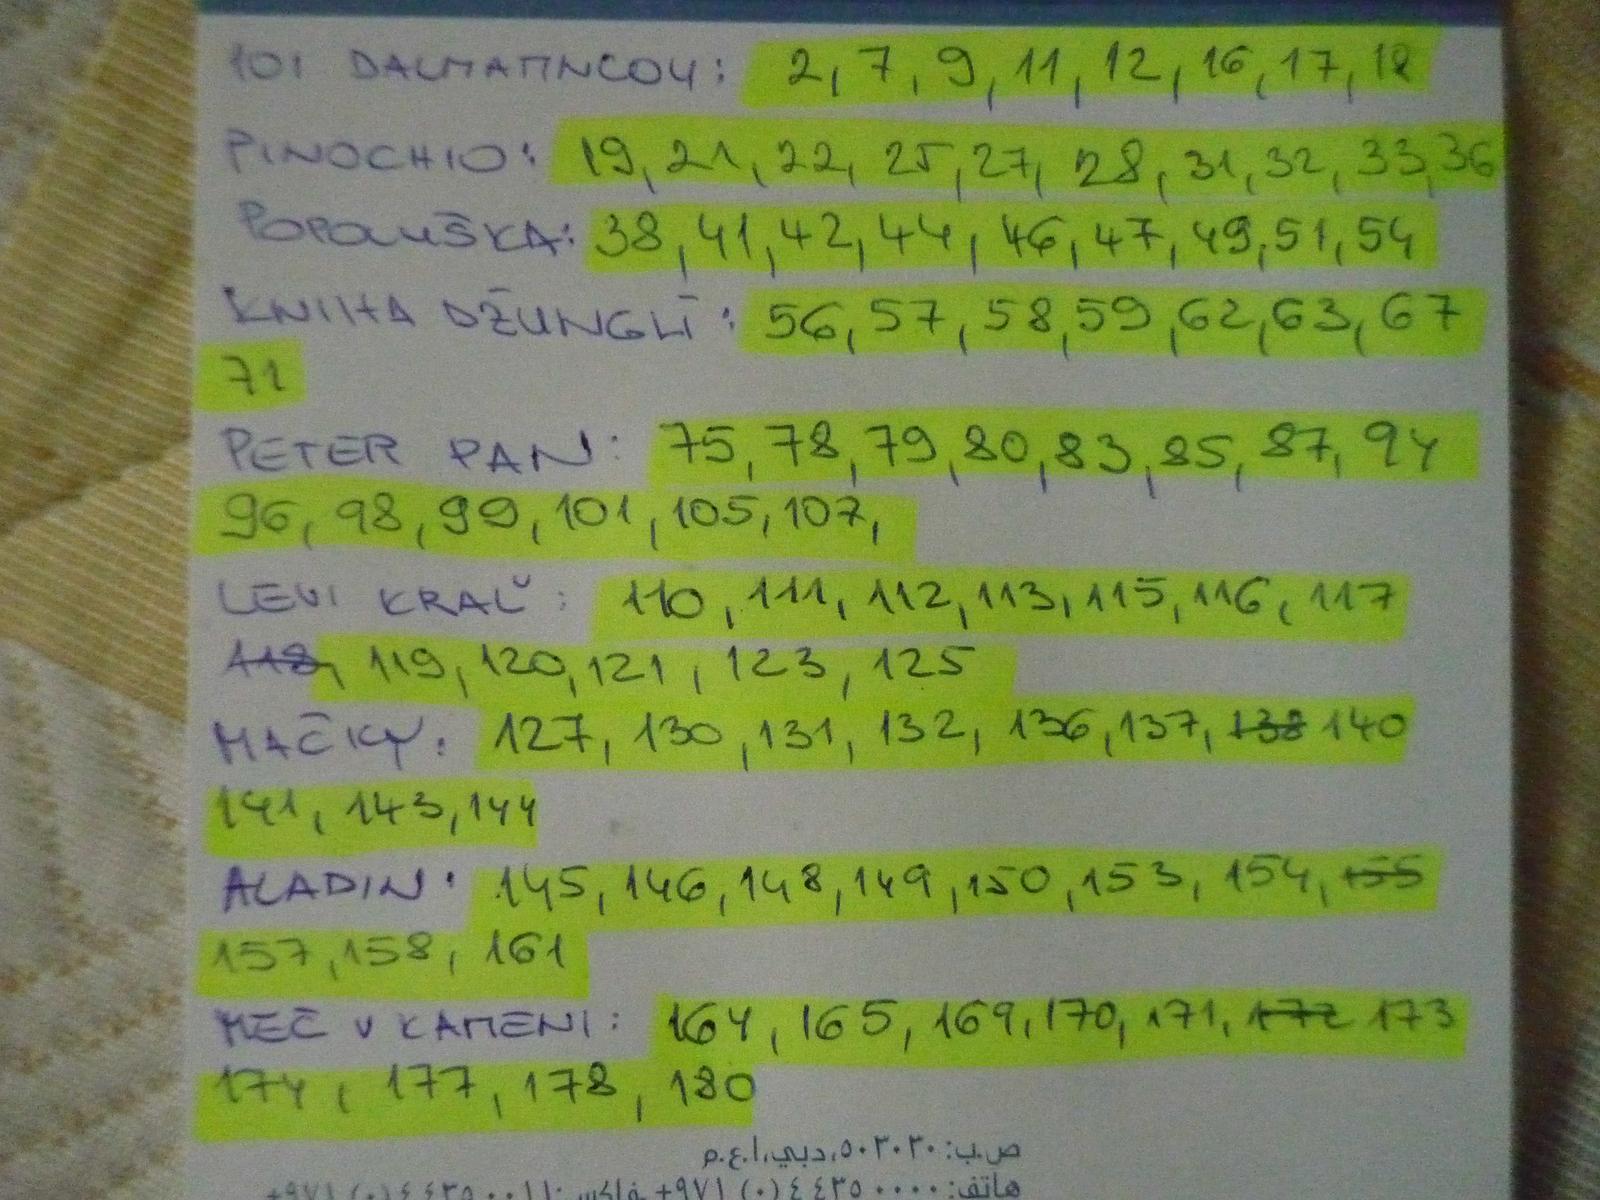 101 DALMATINCOV: 2, 7, 9, 11, 12, 16, 17, 18
PINOCHIO: 19, 21, 22, 25, 27, 28, 31, 32, 33, 36
POPOLUŠKA: 38, 41, 42, 44, 46, 47, 49, 51, 54
KNIHA DŽUNGLÍ: 56, 57, 58, 59, 62, 63, 67
71
PETER PAN: 75, 78, 79, 80, 83, 85, 87, 94
96, 98, 99, 101, 105, 107,
LEVI KRAĽ: 110, 111, 112, 113, 115, 116, 117
118, 119, 120, 121, 123, 125
MAČKY: 127, 130, 131, 132, 136, 137, 138 140
141, 143, 144
ALADIN: 145, 146, 148, 149, 150, 153, 154, 155
157, 158, 161
MEČ V KAMENI: 164, 165, 169, 170, 171, 172 173
174, 177, 178, 180
ص.ب: ٥٠٣٠٣٠، دبي، ا.ع.م
هاتف: ٤٤٣٥٠٠٠٠ (٠) ٩٧١+ فاكس: ٤٤٣٥٠٠١١ (٠) ٩٧١+